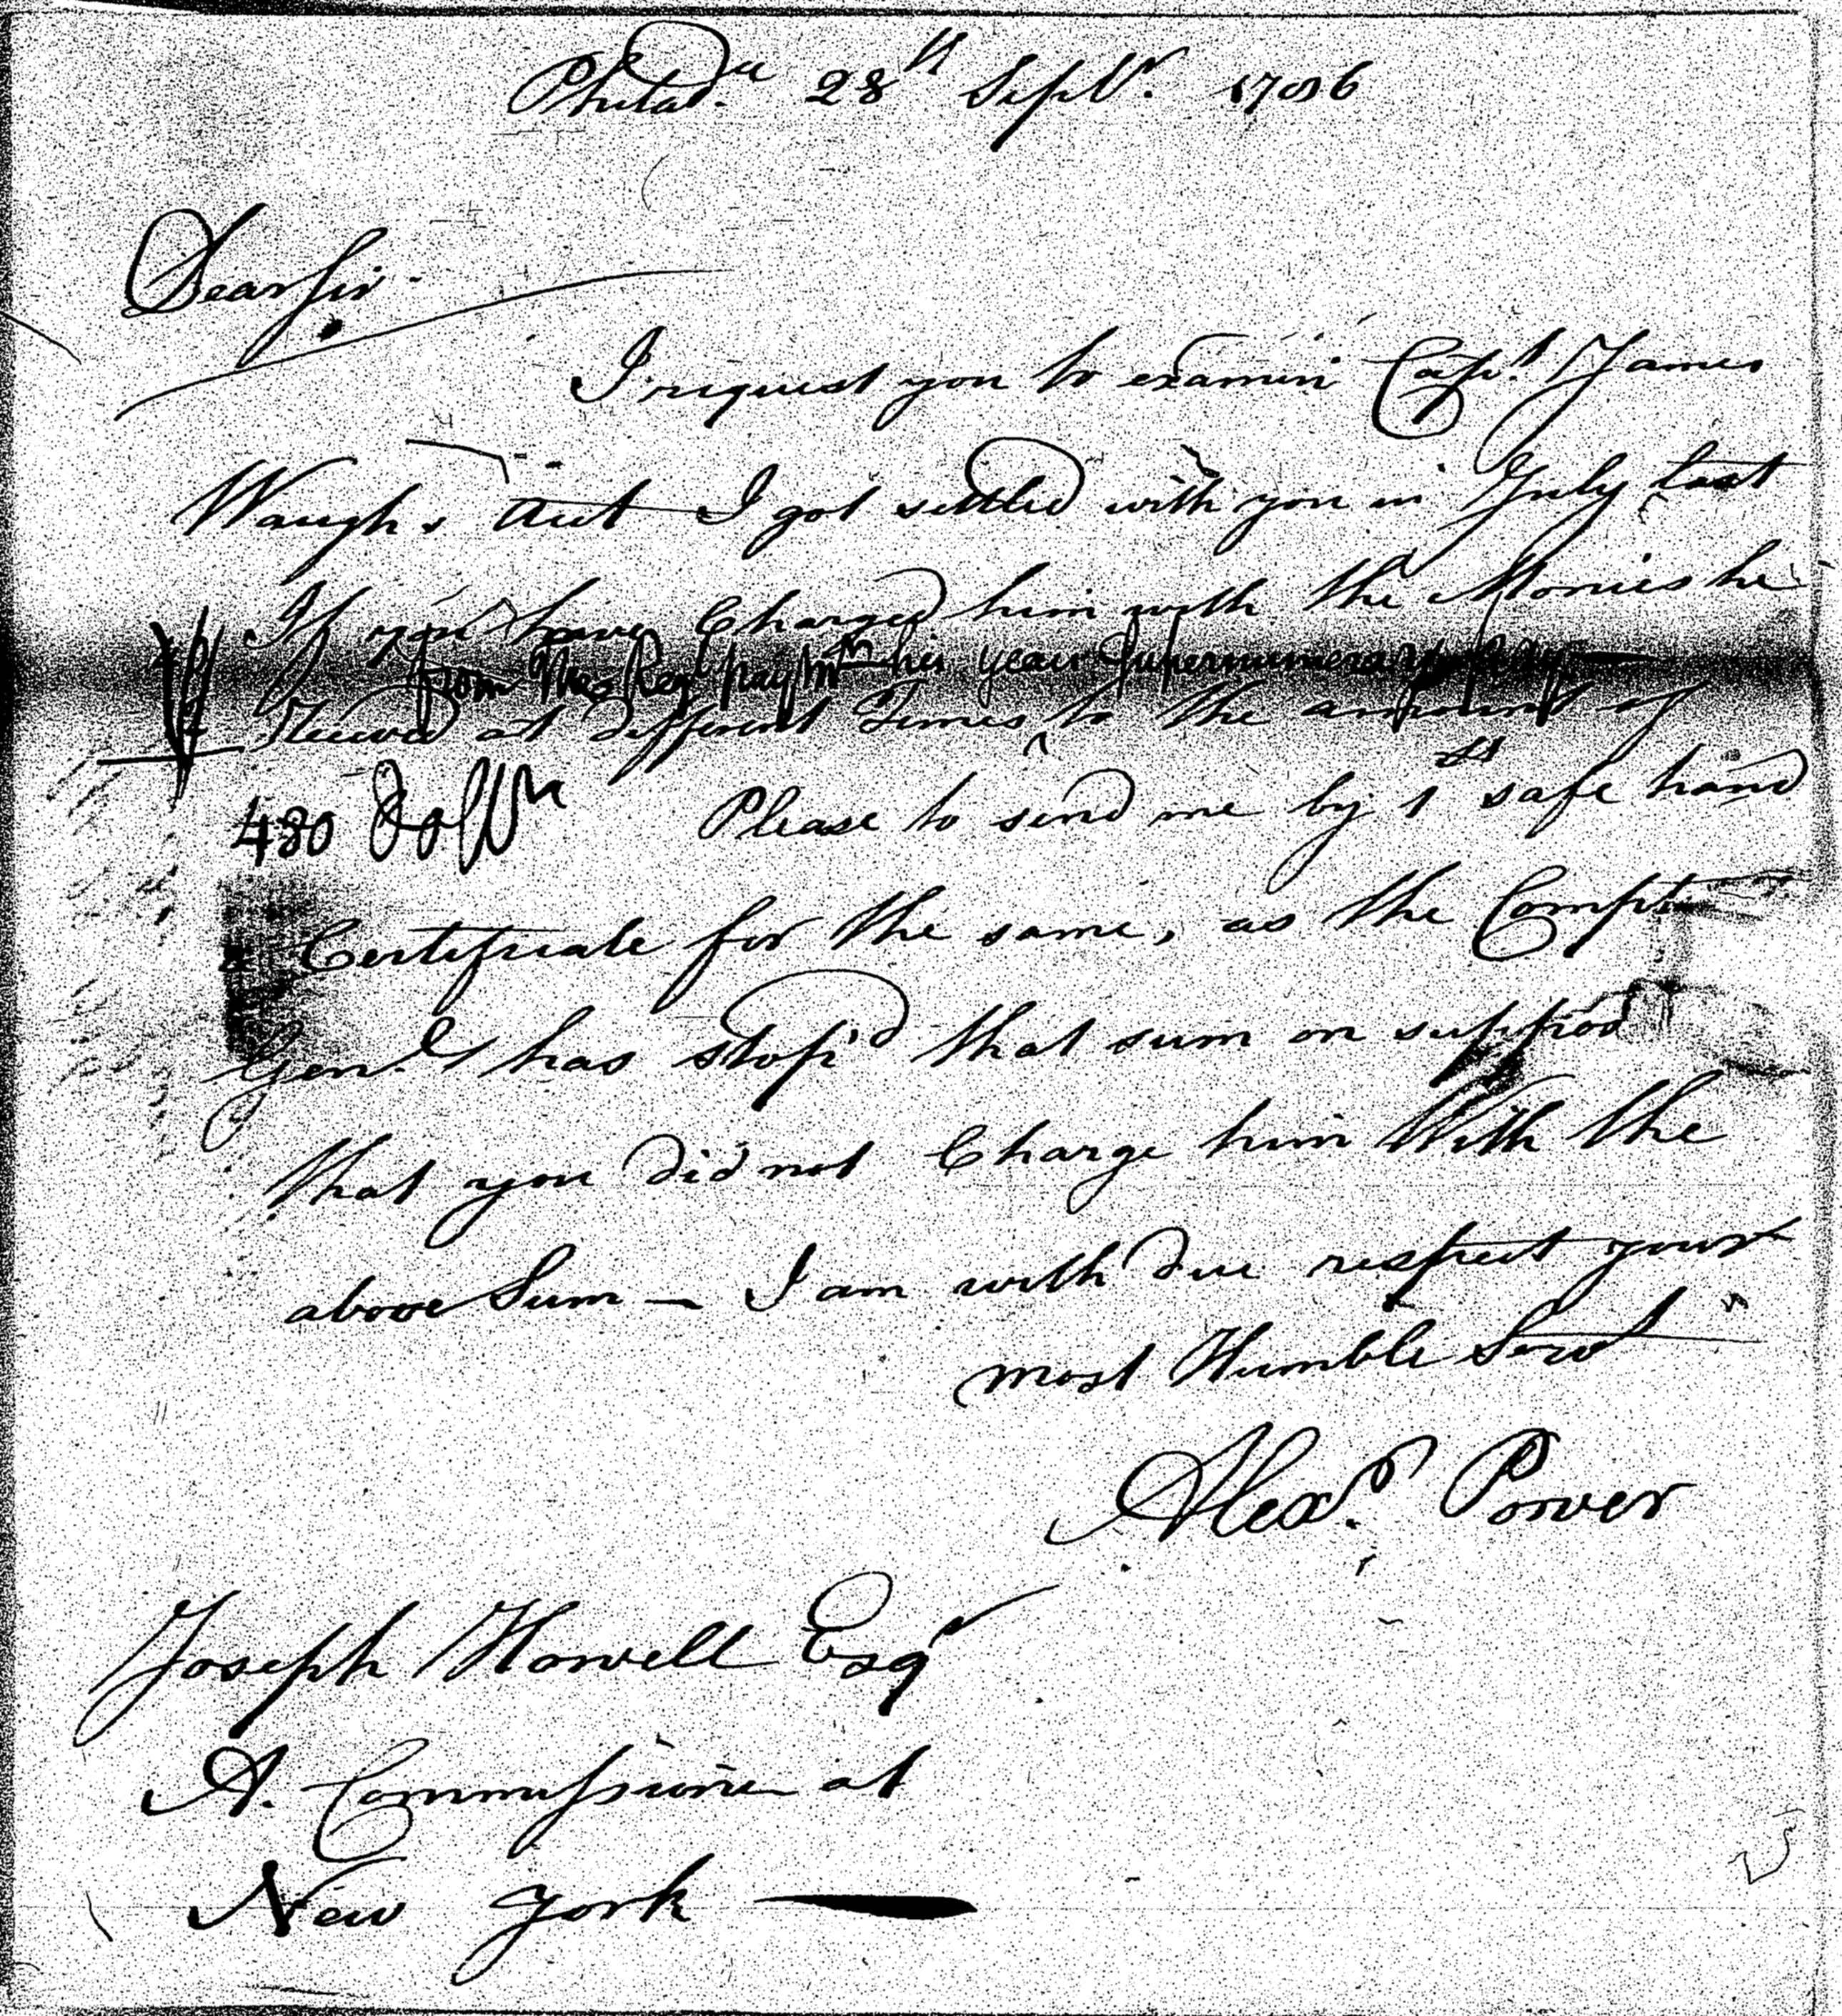 Philad.a 28th Septr. 1786
Dear Sir.
I request you to examin Capt. James
Waugh,s Acct I got settled with you in July last
If you have Charged him with the Monies he
from the Regl paymr his year Supernumerary pay
Received at different Times ^ to the amount of
480 Dollrs Please to send me by 1st safe hand
a Certificate for the same, as the Compt
Gen.l has stop'd that sum on suppos
that you did not Charge him With the
above Sum — I am with due respect your
most Humble Servt
Alexr. Power
Joseph Howell Esqr
A. Commissioner at
New York